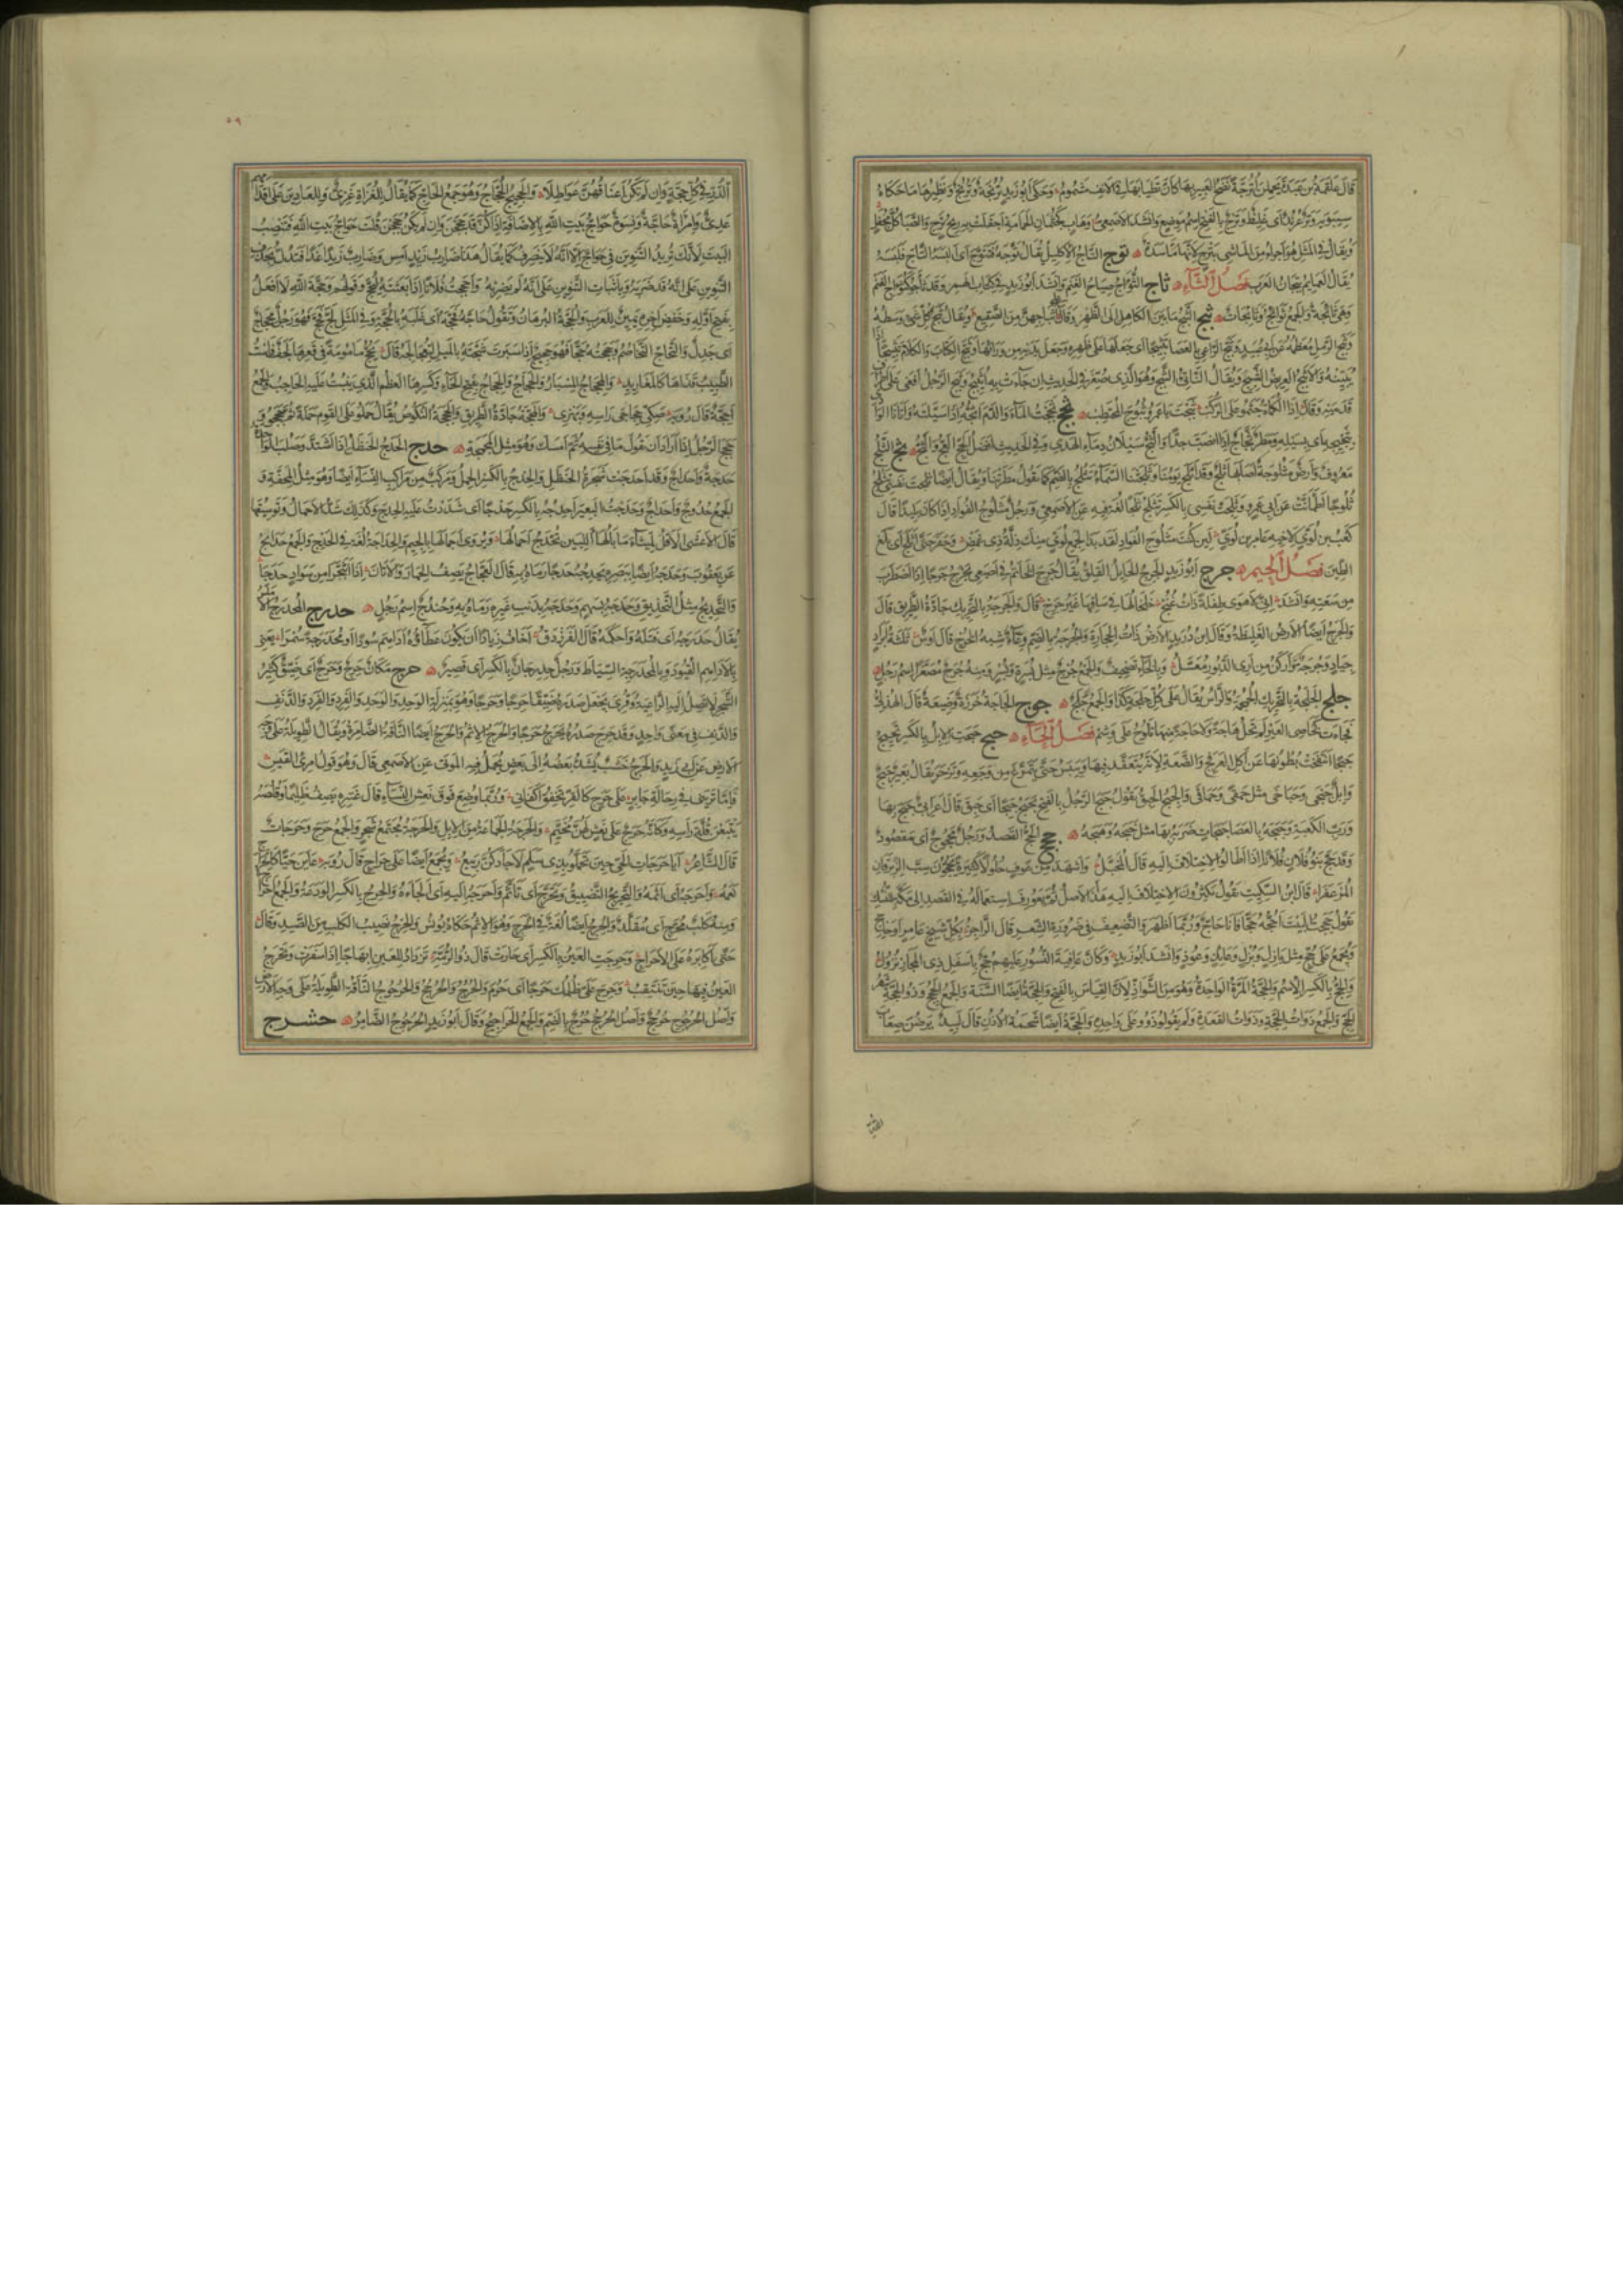 قال علقمة بن عبدة يحملن أترجة نضخ العبير بها كأن تطيابها في الأنف مشموم وحكى أبو زيد ترنجة وترنج ونظيرها ما حكاه
سيبويه وتر عرند أي غليظ وترج بالفتح اسم موضع وأنشد الأصمعي وهاب كجثمان الحمامة أجفلت به ريح ترج والصبا كل مجفل
ويقال في المثل هو أجرأ من الماشي بترج لأنها مأسدة توج التاج الإكليل يقال توجه فتتوج أي ألبسه التاج فلبسه
يقال العمائم تيجان العرب فصل الثاء ثأج الثؤاج صياح الغنم وأنشد أبو زيد في كتاب الهمز وقد ثأجوا كثؤاج الغنم
وهي ثائجة والجمع ثوائج وثائجات ثبج الثبج ما بين الكاهل إلى الظهر وقال ويقال ثبج كل شيء وسطه
وثبج الرمل معظمه عن أبي عبيد وثبج الراعي بالعصا تثبيجا أي جعلها على ظهره وجعل يديه من ورائها وثبج الكتاب والكلام تثبيجا
لم يبينه والأثبج العريض الثبج ويقال الناتئ الثبج وهو الذي صغر في الحديث إن جاءت به أثيبج
قد مر به وقال إذا الكماة جثموا على الركب ثبجت يا عمرو ثبوج المحتطب ثجج ثججت الماء والدم أثجه إذا سيلته وأتانا الوادي
بثجيجه أي بسيله ومطر ثجاج إذا انصب جدا والثج سيلان دماء الهدي وفي الحديث أفضل الحج العج والثج ثلج الثلج
معروف وأرض مثلوجة أصابها ثلج وقد أثلج يومنا وثلجتنا السماء تثلج بالضم كما تقول مطرتنا ويقال أيضا ثلجت نفسي تثلج
ثلوجا اطمأنت عن أبي عمرو وثلجت نفسي بالكسر تثلج ثلجا لغة فيه عن الأصمعي ورجل مثلوج الفؤاد إذا كان بليدا قال
كعب بن لؤي لأخيه عامر بن لؤي لئن كنت مثلوج الفؤاد لقد بدا لجمع لؤي منك ذلة ذي غمض وحفر حتى أثلج أي بلغ
الطين فصل الجيم جرج أبو زيد الجرج الجائل القلق يقال جرج الخاتم في إصبعي يجرج جرجا إذا اضطرب
من سعته وأنشد إني لأهوى طفلة ذات غنج خلخالها في ساقها غير جرج قال والجرجة بالتحريك جادة الطريق قال
والجرج أيضا الأرض الغليظة وقال ابن دريد الأرض ذات الحجارة والجرجة بالضم وعاء شبه الخرج قال أوس ثلاثة أبراد
جياد وجرجة وأدكن من أري الدبور معسل وبالخاء تصحيف والجمع جرج مثل بسرة وبسر ومنه جريج مصغرا اسم رجل
جلج الجلجة بالتحريك الجمجمة والرأس يقال على كل جلجة كذا والجمع جلج جوج الجاجة خرزة وضيعة قال الهذلي
فجاءت كخاصي العير لم تحل عاجة ولا جاجة منها تلوح على وشم فصل الحاء حبج حبجت الإبل بالكسر تحبج
حبجا انتفخت بطونها عن أكل العرفج والضعة لأنه يتعقد فيها وييبس حتى تمرغ من وجعه وتزحر يقال بعير حبج
وإبل حبجى وحباجى مثل حمقى وحماقى والحبج الحبق تقول حبج الرجل بالفتح يحبج حبجا أي حبق قال أعرابي حبج بها
ورب الكعبة وحبجه بالعصا حبجات ضربه بها مثل خبجه وهبجه حجج الحج القصد ورجل محجوج أي مقصود
وقد حج بنو فلان فلانا إذا أطالوا الاختلاف إليه قال المخبل وأشهد من عوف حلولا كثيرة يحجون سب الزبرقان
المزعفرا قال ابن السكيت يقول يكثرون الاختلاف إليه هذا الأصل ثم تعورف استعماله في القصد إلى مكة للنسك
تقول حججت البيت أحجه حجا فأنا حاج وربما أظهروا التضعيف في ضرورة الشعر قال الراجز بكل شيخ عامر أو حاجج
ويجمع على حج مثل بازل وبزل وعائذ وعوذ وأنشد أبو زيد وكأن عافية النسور عليهم حج بأسفل ذي المجاز نزول
والحج بالكسر الاسم والحجة المرة الواحدة وهو من الشواذ لأن القياس بالفتح والحجة أيضا السنة والجمع الحجج وذو الحجة شهر
الحج والجمع ذوات الحجة وذوات القعدة ولم يقولوا ذوو على واحده والحجة أيضا شحمة الأذن قال لبيد يرضن صعاب
٥٩
الدر في كل حجة وإن لم تكن أعناقهن عواطلا والحجيج الحجاج وهو جمع الحاج كما يقال للغزاة غزي وللعادين على أقدامهم
عدي وامرأة حاجة ونسوة حواج بيت الله بالإضافة إذا كن قد حججن وإن لم يكن حججن قلت حواج بيت الله فتنصب
البيت لأنك تريد التنوين في حواج إلا أنه لا ينصرف كما يقال هذا ضارب زيد أمس وضارب زيدا غدا فتدل بحذف
التنوين على أنه قد ضربه وبإثبات التنوين على أنه لم يضربه وأحججت فلانا إذا بعثته ليحج وقولهم وحجة الله لا أفعل
بفتح أوله وخفض آخره يمين للعرب والحجة البرهان وتقول حاجه فحجه أي غلبه بالحجة وفي المثل لج فحج فهو رجل محجاج
أي جدل والتحاج التخاصم وحججته حجا فهو حجيج إذا سبرت شجته بالميل لتعالجه قال يحج مأمومة في قعرها لجف فاست
الطبيب قذاها كالمغاريد والمحجاج المسبار والحجاج والحجاج بفتح الحاء وكسرها العظم الذي ينبت عليه الحاجب والجمع
أحجة قال رؤبة صكي حجاجي رأسه وبهزي والمحجة جادة الطريق والحجحجة النكوص يقال حملوا على القوم حملة ثم حجحجوا و
حجحج الرجل إذا أراد أن يقول ما في نفسه ثم أمسك وهو مثل المجمجة حدج الحدج الحنظل إذا اشتد وصلب الواحدة
حدجة وأحداج وقد أحدجت شجرة الحنظل والحدج بالكسر الحمل ومركب من مراكب النساء أيضا وهو مثل المحفة و
الجمع حدوج وأحداج وحدجت البعير أحدجه بالكسر حدجا أي شددت عليه الحدج وكذلك شد الأحمال وتوسيقها
قال الأعشى ألا قل لميثاء ما بالها أللبين تحدج أحمالها ويروى أجمالها بالجيم والحداجة لغة في الحدج والجمع حدائج
عن يعقوب وحدجه أيضا ببصره يحدجه حدجا رماه به قال العجاج يصف الحمار والأتان إذا اثبجرا من سواد حدجا
والتحديج مثل التحديق وحدجه بسهم وحدجه بذنب غيره رماه به وحندج اسم رجل حدرج المحدرج الأملس
يقال حدرجه أي فتله وأحكمه قال الفرزدق أخاف زيادا أن يكون عطاؤه أداهم سودا أو محدرجة سمرا يعني
بالأداهم القيود وبالمحدرجة السياط ورجل حدرجان بالكسر أي قصير حرج مكان حرج وحرج أي ضيق كثير
الشجر لا تصل إليه الراعية وقرئ يجعل صدره ضيقا حرجا وحرجا وهو بمنزلة الوحد والوحد والفرد والفرد والدنف
والدنف في معنى واحد وقد حرج صدره يحرج حرجا والحرج الإثم والحرج أيضا الناقة الضامرة ويقال الطويلة على وجه
الأرض عن أبي زيد والحرج خشب يشد بعضه إلى بعض يحمل فيه الموتى عن الأصمعي قال وهو قول امرئ القيس
فإما تريني في رحالة جابر على حرج كالقر تخفق أكفاني وربما وضع فوق نعش النساء قال عنترة يصف ظليما وقلصه
يتبعن قلة رأسه وكأنه حرج على نعش لهن مخيم والحرجة الجماعة من الإبل والحرجة مجتمع شجر والجمع حرج وحرجات
قال الشاعر أيا حرجات الحي حين تحملوا بذي سلم لا جادكن ربيع ويجمع أيضا على حراج قال رؤبة عاين حيا كالحراج
نعمه وأحرجه أي أثمه والتحريج التضييق وتحرج أي تأثم وأحرجه إليه أي ألجأه والحرج بالكسر الودعة والجمع أحراج
ومنه كلب محرج أي مقلد والحرج أيضا لغة في الحرج وهو الإثم حكاه يونس والحرج نصيب الكلب من الصيد وقال
حتى أكابره على الأحراج وحرجت العين بالكسر أي حارت قال ذو الرمة تزداد للعين إبهاجا إذا سفرت وتحرج
العين فيها حين تنتقب وحرج علي ظلمك حرجا أي حرم والحرجج والحرجيج والحرجوج الناقة الطويلة على وجه الأرض
وأصل الحرجوج حرجج وأصل الحرجج حرج بالضم والجمع الحراجيج وقال أبو زيد الحرجوج الضامر حشرج